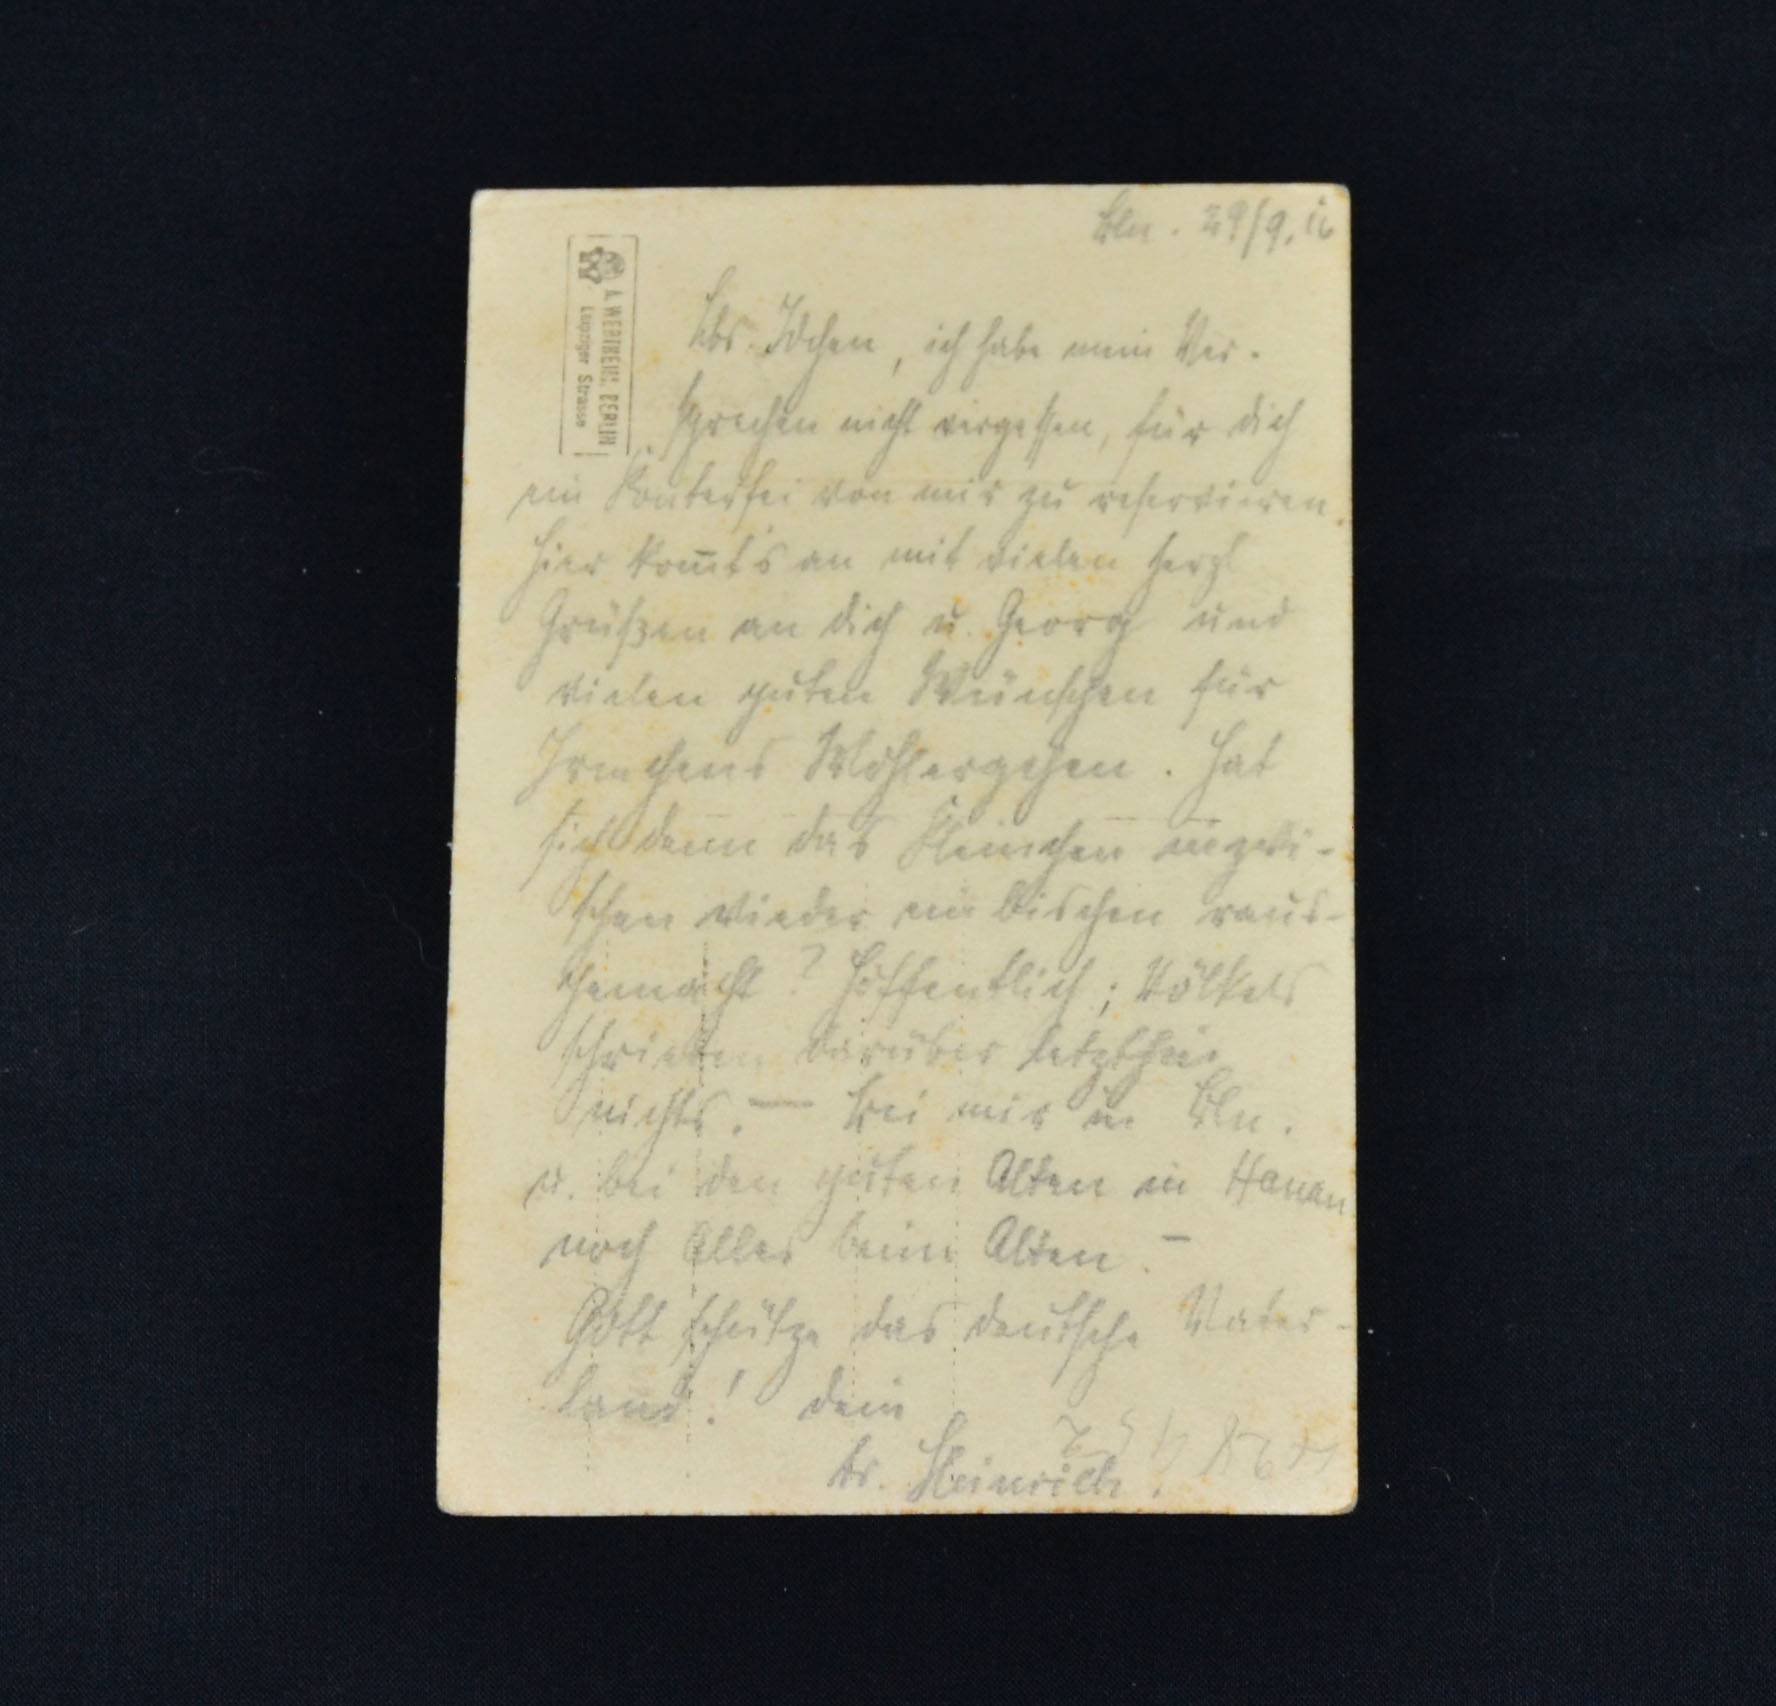 Bln. 29/9.16
A. WERTHEIM. BERLIN
Leipziger Strasse
Lbs. Idchen, ich habe mein Ver-
sprechen nicht vergessen, für dich
ein Konterfei von mir zu reservieren.
Hier kom̄t's an mit vielen herzl
Grüßen an dich u. Georg und
vielen guten Wünschen für
Irmchens Wohlergehen. Hat
sich denn das Kleinchen inzwi-
schen wieder ein bischen raus-
gemacht? Hoffentlich; Völkels
schrieben darüber letzthin
nichts. — Bei mir in Bln.
u. bei den guten Alten in Hanau
noch Alles beim Alten. —
Gott schütze das deutsche Vater-
land! dein
br. Heinrich.